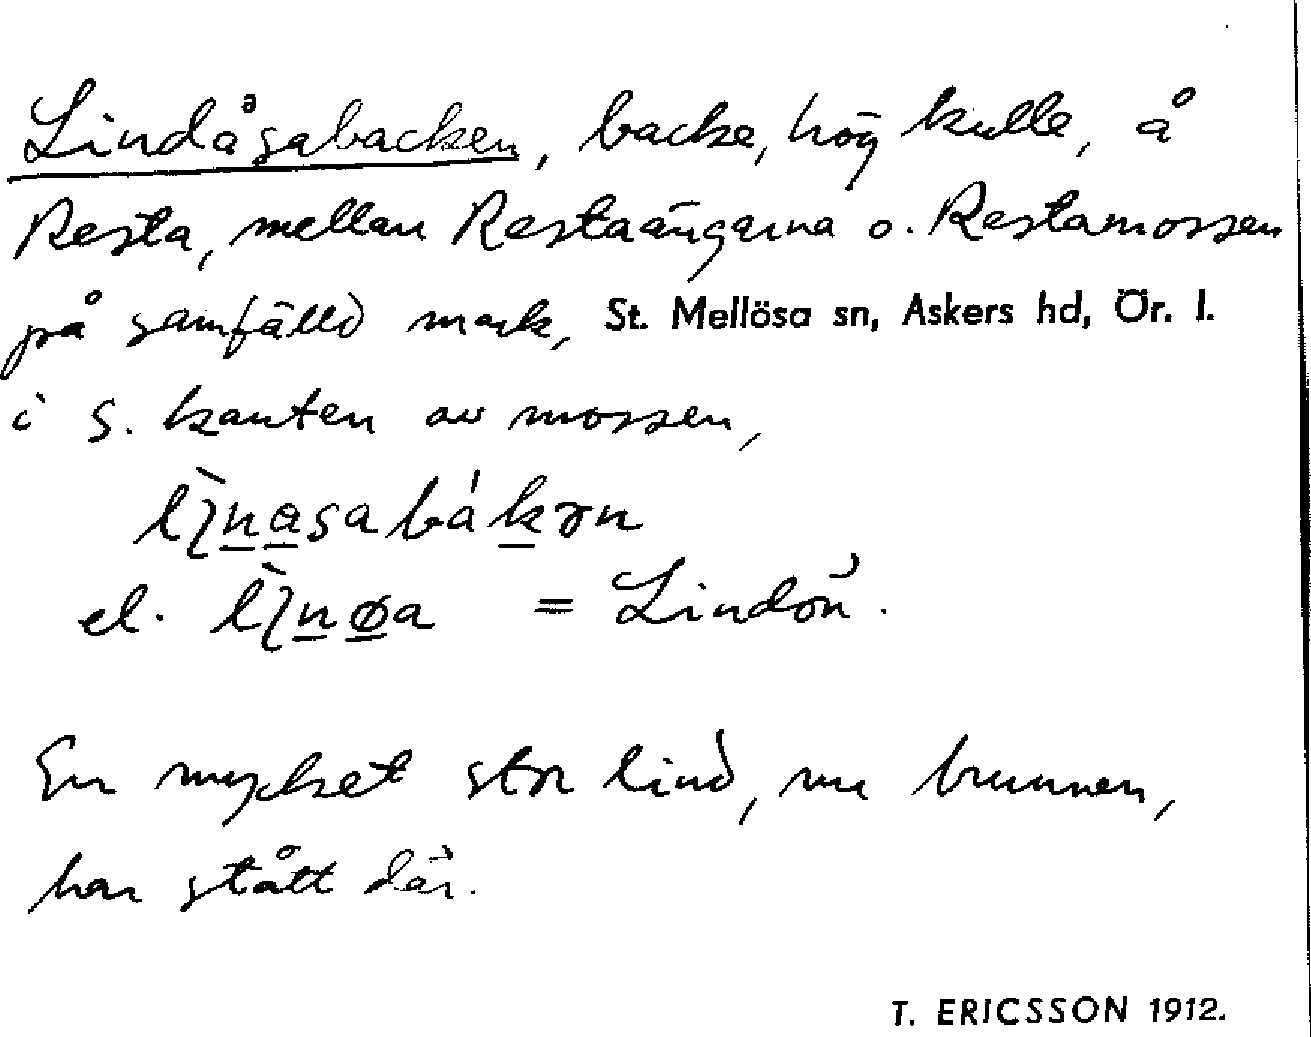 Lindåsabacken, backe, hög kulle, å
Resta, mellan Restaängarna o. Restamossen
på samfälld mark, St. Mellösa sn, Askers hd, Ör. l.
i S. kanten av mossen,
el. = Lindön.
En mycket stor lind, nu brunnen,
har stått där.
T. ERICSSON 1912.